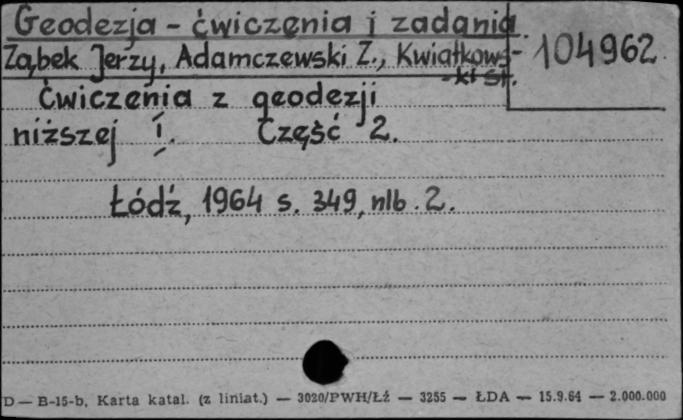 Geodezja - ćwiczenia i zadania
104962
Ząbek Jerzy, Adamczewski Z., Kwiatkows-
-ki St.
Ćwiczenia z geodezji
niższej I. Część 2.
Łódź, 1964 s. 349, nlb. 2.
D — B-15-b. Karta katal. (z liniat.) — 3020/PWH/Łź — 3255 — ŁDA — 15.9.64 — 2.000.000